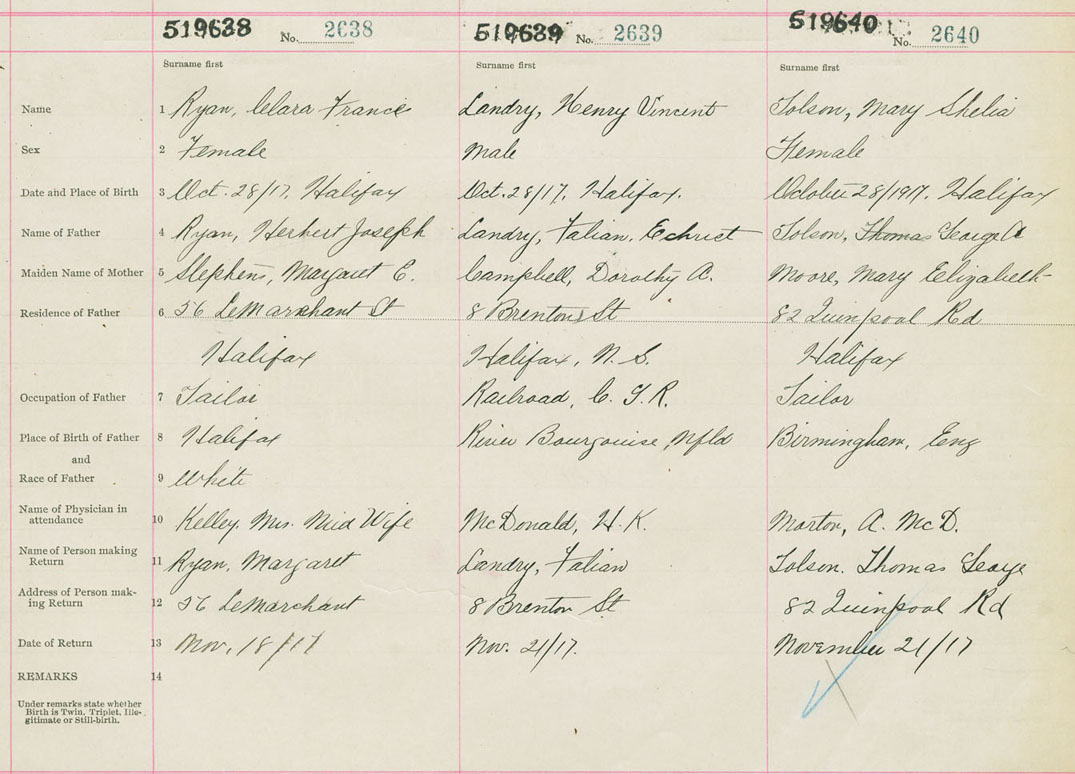 519638 No. 2638 519639 No. 2639 519640 No. 2640
Surname first Surname first Surname first
Name 1 Ryan, Clara Francis Landry, Henry Vincent Tolson, Mary Shelia
Sex 2 Female Male Female
Date and Place of Birth 3 Oct. 28/17. Halifax Oct. 28/17. Halifax. October 28/1917. Halifax
Name of Father 4 Ryan, Herbert Joseph Landry, Falian, Tolson, Thomas George A
Maiden Name of Mother 5 Stephens, Margaret E. Campbell, Dorothy A. Moore, Mary Elizabeth
Residence of Father 6 56 LeMarchant St 8 Brenton St 82 Quinpool Rd
Halifax Halifax, N. S. Halifax
Occupation of Father 7 Tailor Railroad, C. G. R. Tailor
Place of Birth of Father 8 Halifax River Bourgouise, Nfld Birmingham, Eng
and
Race of Father 9 White
Name of Physician in
attendance 10 Kelley, Mrs. Mid Wife McDonald, H. K. Morton, A. McD.
Name of Person making
Return 11 Ryan, Margaret Landry, Falian Tolson. Thomas George
Address of Person mak-
ing Return 12 56 LeMarchant 8 Brenton St 82 Quinpool Rd
Date of Return 13 Nov. 18/17 Nov. 21/17. November 21/17
REMARKS 14
Under remarks state whether
Birth is Twin, Triplet, Ille-
gitimate or Still-birth.